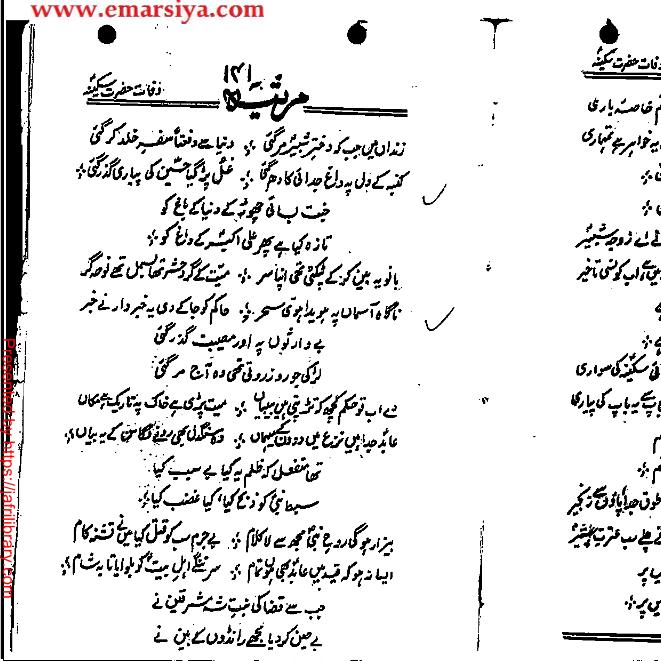 www.emarsiya.com
وفات حضرت سکینہؑ
۱۴۱
مرثیہ
زنداں میں جب کہ دخترِ شبیرؑ مر گئی ؞ دنیا سے دفعتاً سفرِ خلد کر گئی
کنبہ کے دل پہ داغ جدائی کا دھر گئی ؞ غل پڑ گیا حسینؑ کی پیاری گذر گئی
جنت بسائی چھوڑ کے دنیا کے باغ کو
تازہ کیا ہے پھر علی اکبرؑ کے داغ کو
بانو یہ بین کر کے پٹکتی تھی اپنا سر ؞ میت کے گرد حشر تھا بسمل تھے نوحہ گر
ناگاہ آسماں پہ ہویدا ہوئی سحر ؞ حاکم کو جا کے دی یہ خبردار نے خبر
بے وارثوں پہ اور مصیبت گذر گئی
لڑکی جو روز روتی تھی وہ آج مر گئی
دے اب تو حکم کچھ کہ تڑپتی ہیں بیبیاں ؞ میت پڑی ہے خاک پہ تاریک ہے مکاں
عابد جدا ہیں نزع میں
تھا منفعل کہ ظلم یہ کیا بے سبب کیا
سبطِ نبیؐ کو ذبح کیا، کیا غضب کیا
بیزار ہوگی روحِ نبیؐ مجھ سے لا کلام ؞ بے جرم سب کو قتل کیا میں نے تشنہ کام
ایسا نہ ہو کہ قید میں عابدؑ بھی ہو تمام ؞ سر ننگے اہلِ بیتؑ کو بلوایا تا بہ شام
جب سے قضا کی بنتِ شہِ مشرقین نے
بے چین کر دیا مجھے رانڈوں کے بین نے
وفات حضرت سکینہؑ
خاصۂ باری
یہ خواہر ہے تمہاری
اے زوجۂ شبیرؑ
آپ کو تاخیر
سکینہؑ کی سواری
باپ کی پیاری
طوق جدا پاؤں سے زنجیر
Presented by: https://jafrilibrary.com